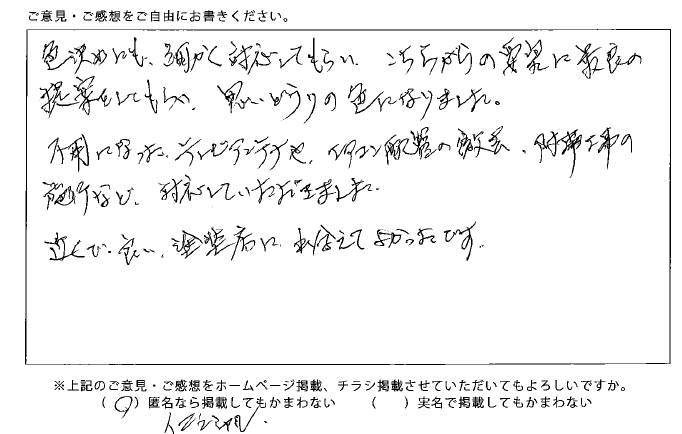 ご意見・ご感想をご自由にお書きください。
色決めにも、細かく対応してもらい、こちらからの要望に最良の
提案をしてもらい、思いどうりの色になりました。
不用になった、テレビアンテナや、エアコン配管の撤去、附帯工事の
施行など、対応していただきました。
近くで、良い、塗装店に出会えてよかったです。
※上記のご意見・ご感想をホームページ掲載、チラシ掲載させていただいてもよろしいですか。
(○)匿名なら掲載してもかまわない ( )実名で掲載してもかまわない